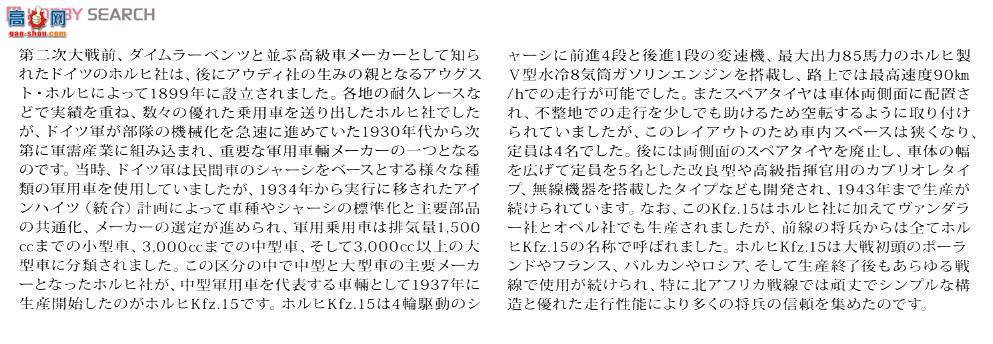 HOBBY SEARCH
高网模
gao-shou.com
第二次大戦前、ダイムラーベンツと並ぶ高級車メーカーとして知ら
れたドイツのホルヒ社は、後にアウディ社の生みの親となるアウグス
ト・ホルヒによって1899年に設立されました。各地の耐久レースな
どで実績を重ね、数々の優れた乗用車を送り出したホルヒ社でした
が、ドイツ軍が部隊の機械化を急速に進めていた1930年代から次
第に軍需産業に組み込まれ、重要な軍用車輌メーカーの一つとなる
のです。当時、ドイツ軍は民間車のシャーシをベースとする様々な種
類の軍用車を使用していましたが、1934年から実行に移されたアイ
ンハイツ（統合）計画によって車種やシャーシの標準化と主要部品
の共通化、メーカーの選定が進められ、軍用乗用車は排気量1,500
ccまでの小型車、3,000ccまでの中型車、そして3,000cc以上の大
型車に分類されました。この区分の中で中型と大型車の主要メーカ
ーとなったホルヒ社が、中型軍用車を代表する車輌として1937年に
生産開始したのがホルヒKfz.15です。ホルヒKfz.15は4輪駆動のシ
ャーシに前進4段と後進1段の変速機、最大出力85馬力のホルヒ製
V型水冷8気筒ガソリンエンジンを搭載し、路上では最高速度90km
/hでの走行が可能でした。またスペアタイヤは車体両側面に配置さ
れ、不整地での走行を少しでも助けるため空転するように取り付け
られていましたが、このレイアウトのため車内スペースは狭くなり、
定員は4名でした。後には両側面のスペアタイヤを廃止し、車体の幅
を広げて定員を5名とした改良型や高級指揮官用のカブリオレタイ
プ、無線機器を搭載したタイプなども開発され、1943年まで生産が
続けられています。なお、このKfz.15はホルヒ社に加えてヴァンダラ
ー社とオペル社でも生産されましたが、前線の将兵からは全てホル
ヒKfz.15の名称で呼ばれました。ホルヒKfz.15は大戦初頭のポーラ
ンドやフランス、バルカンやロシア、そして生産終了後もあらゆる戦
線で使用が続けられ、特に北アフリカ戦線では頑丈でシンプルな構
造と優れた走行性能により多くの将兵の信頼を集めたのです。